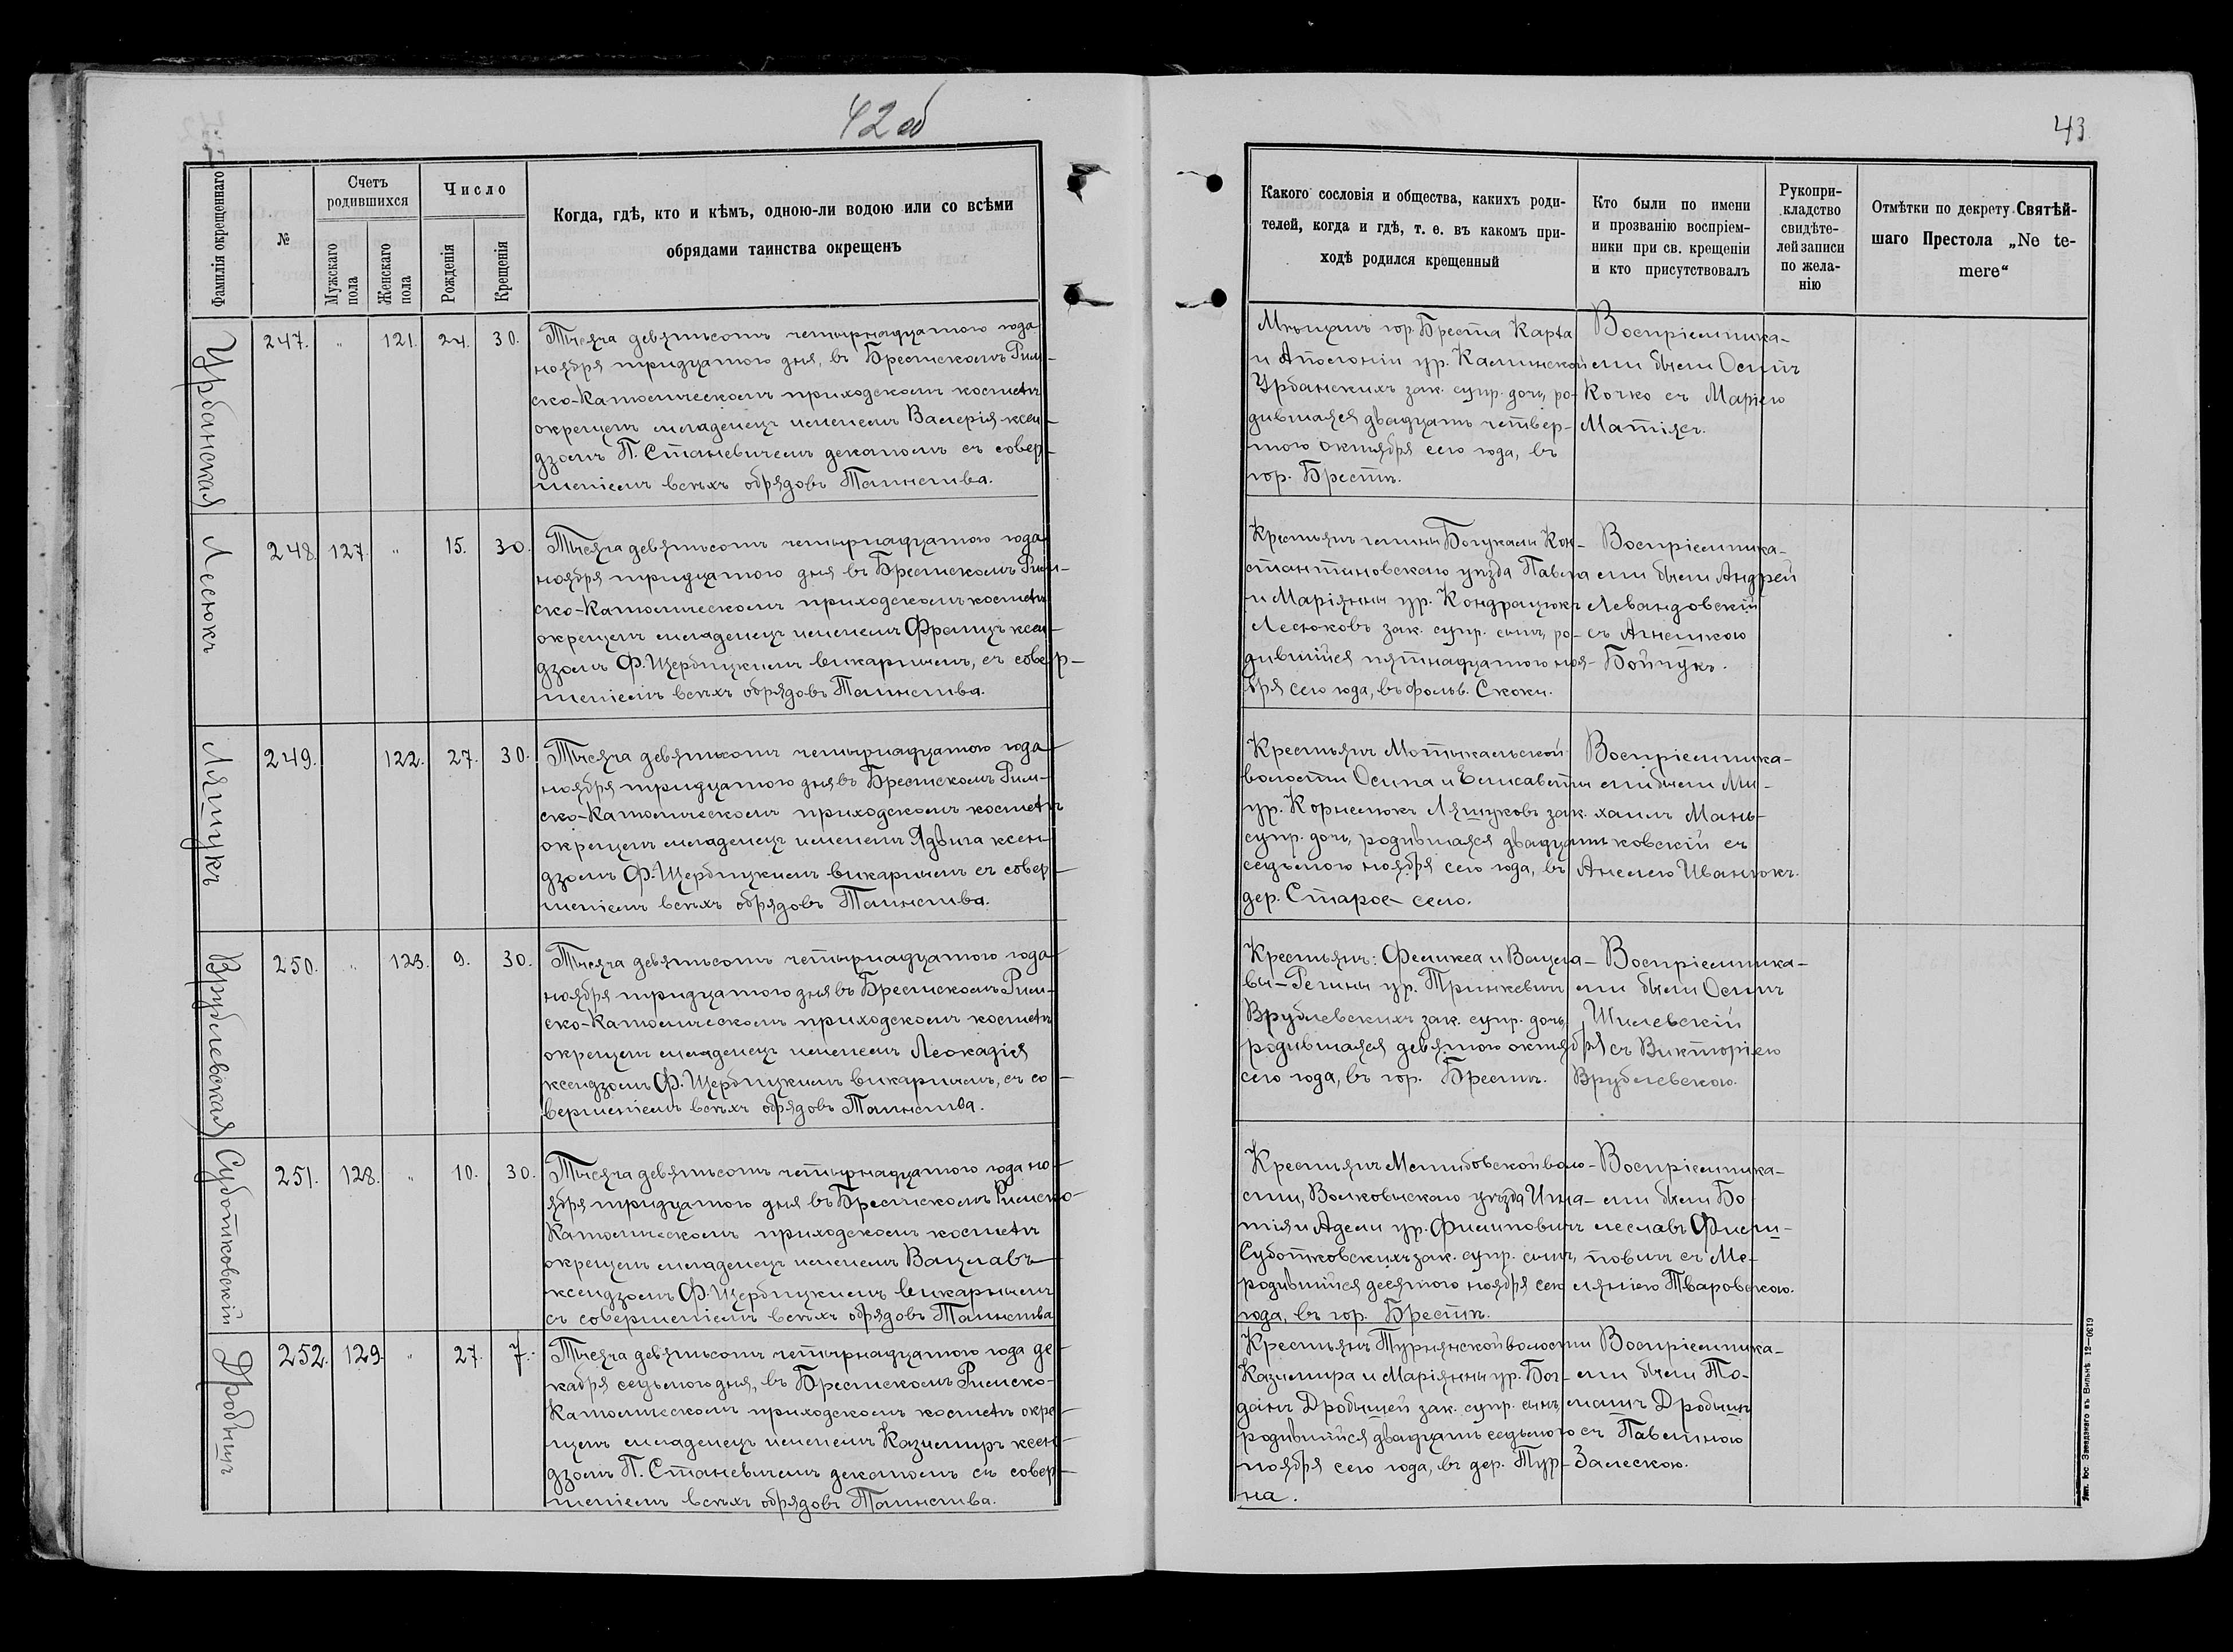 42 об
Фамилія окрещеннаго
№
Счетъ
родившихся
Мужскаго
пола
Женскаго
пола
Число
Рожденія
Крещенія
Когда, гдѣ, кто и кѣмъ, одною-ли водою или со всѣми
обрядами таинства окрещенъ
Урбанская
247. „ 121. 24. 30.
Тысяча девятьсотъ четырнадцатого года
ноября тридцатого дня, въ Брестскомъ Рим-
ско-Католическомъ приходскомъ костелѣ
окрещенъ младенецъ именемъ Валерія ксен-
дзомъ П. Станевичемъ деканомъ съ совер-
шеніемъ всѣхъ обрядовъ Таинства.
Лесюкъ
248. 127. „ 15. 30.
Тысяча девятьсотъ четырнадцатого года
ноября тридцатого дня въ Брестскомъ Рим-
ско-Католическомъ приходскомъ костелѣ
окрещенъ младенецъ именемъ Францъ ксен-
дзомъ Ф. Щербицкимъ викаріемъ, съ совер-
шеніемъ всѣхъ обрядовъ Таинства.
Ляшукъ
249. 122. 27. 30.
Тысяча девятьсотъ четырнадцатого года
ноября тридцатого дня въ Брестскомъ Рим-
ско-Католическомъ приходскомъ костелѣ
окрещенъ младенецъ именемъ Ядвига ксен-
дзомъ Ф. Щербицкимъ викаріемъ съ совер-
шеніемъ всѣхъ обрядовъ Таинства.
Врублевская
250. „ 123. 9. 30.
Тысяча девятьсотъ четырнадцатого года
ноября тридцатого дня въ Брестскомъ Рим-
ско-Католическомъ приходскомъ костелѣ
окрещенъ младенецъ именемъ Леокадія
ксендзомъ Ф. Щербицкимъ викаріемъ, съ со-
вершеніемъ всѣхъ обрядовъ Таинства.
Суботковскій
251. 128. „ 10. 30.
Тысяча девятьсотъ четырнадцатого года но-
ября тридцатого дня въ Брестскомъ Римско-
Католическомъ приходскомъ костелѣ
окрещенъ младенецъ именемъ Вацлавъ
ксендзомъ Ф. Щербицкимъ викаріемъ
съ совершеніемъ всѣхъ обрядовъ Таинства
Дробышъ
252. 129. „ 27. 7.
Тысяча девятьсотъ четырнадцатого года де-
кабря седьмого дня, въ Брестскомъ Римско-
Католическомъ приходскомъ костелѣ окре-
щенъ младенецъ именемъ Казимиръ ксен-
дзомъ П. Станевичемъ деканомъ съ совер-
шеніемъ всѣхъ обрядовъ Таинства.
43
Какого сословія и общества, какихъ роди-
телей, когда и гдѣ, т. е. въ какомъ при-
ходѣ родился крещенный
Кто были по имени
и прозванію воспріем-
ники при св. крещеніи
и кто присутствовалъ
Рукопри-
кладство
свидѣте-
лей записи
по жела-
нію
Отмѣтки по декрету Святѣй-
шаго Престола „Ne te-
mere“
Мѣщанъ гор. Бреста Карла
и Аполоніи ур. Калинской
Урбанскихъ зак. супр. дочь, ро-
дившаяся двадцать четвер-
того октября сего года, въ
гор. Брестѣ.
Воспріемника-
ми были Осипъ
Кочко съ Маріею
Матіясъ.
Крестьянъ гмины Богукалы Кон-
стантиновскаго уѣзда Павла
и Маріянны ур. Кондрацюкъ
Лесюковъ зак. супр. сынъ, ро-
дившійся пятнадцатого ноя-
бря сего года, въ фольв. Скоки.
Воспріемника-
ми были Андрей
Левандовскій
съ Агнешкою
Бойчукъ.
Крестьянъ Мотыкальской
волости Осипа и Елисаветы
ур. Корнелюкъ Ляшуковъ зак.
супр. дочь, родившаяся двадцать
седьмого ноября сего года, въ
дер. Старое-село.
Воспріемника-
ми были Ми-
хаилъ Мань-
ковскій съ
Анелею Иванюкъ.
Крестьянъ: Феликса и Вацла-
вы-Регины ур. Тринкевичъ
Врублевскихъ зак. супр. дочь,
родившаяся девятого октября
сего года, въ гор. Брестѣ.
Воспріемника-
ми были Осипъ
Шилевскій
съ Викторіею
Врублевскою.
Крестьянъ Мстибовской воло-
сти, Волковыскаго уѣзда Игна-
тія и Адели ур. Филиповичъ
Суботковскихъ зак. супр. сынъ,
родившійся десятого ноября сего
года, въ гор. Брестѣ.
Воспріемника-
ми были Бо-
леславъ Фили-
повичъ съ Ме-
ляніею Тваровскою.
Крестьянъ Турнянской волости
Казимира и Маріянны ур. Бог-
данъ Дробышей зак. супр. сынъ,
родившійся двадцать седьмого
ноября сего года, въ дер. Тур-
на.
Воспріемника-
ми были То-
машъ Дробышъ
съ Павлиною
Залескою.
Тип. Іос. Завадзкаго въ Вильнѣ 12—0619